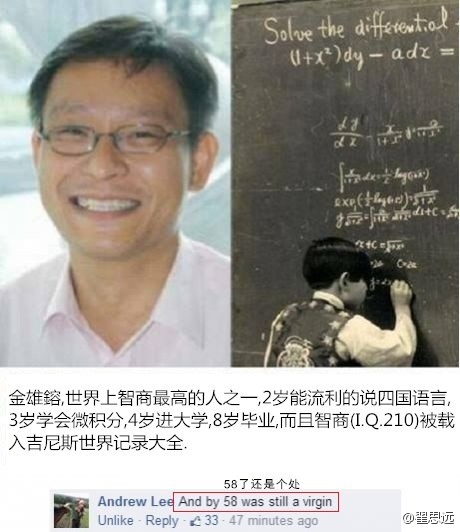 Solve the differential
(1+x²)dy - adx =
金雄鎔,世界上智商最高的人之一,2岁能流利的说四国语言,
3岁学会微积分,4岁进大学,8岁毕业,而且智商(I.Q.210)被载
入吉尼斯世界记录大全.
58了还是个处
Andrew Lee And by 58 was still a virgin
Unlike · Reply · 33 · 47 minutes ago
@翟思远